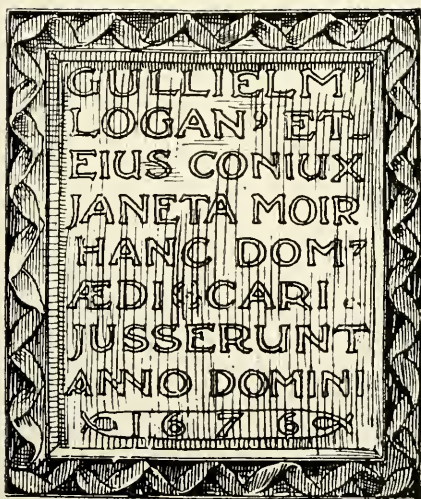 GULLIELM'
LOGAN' ET
EIUS CONIUX
JANETA MOIR
HANC DOM'
ÆDIFICARI
JUSSERUNT
ANNO DOMINI
1676